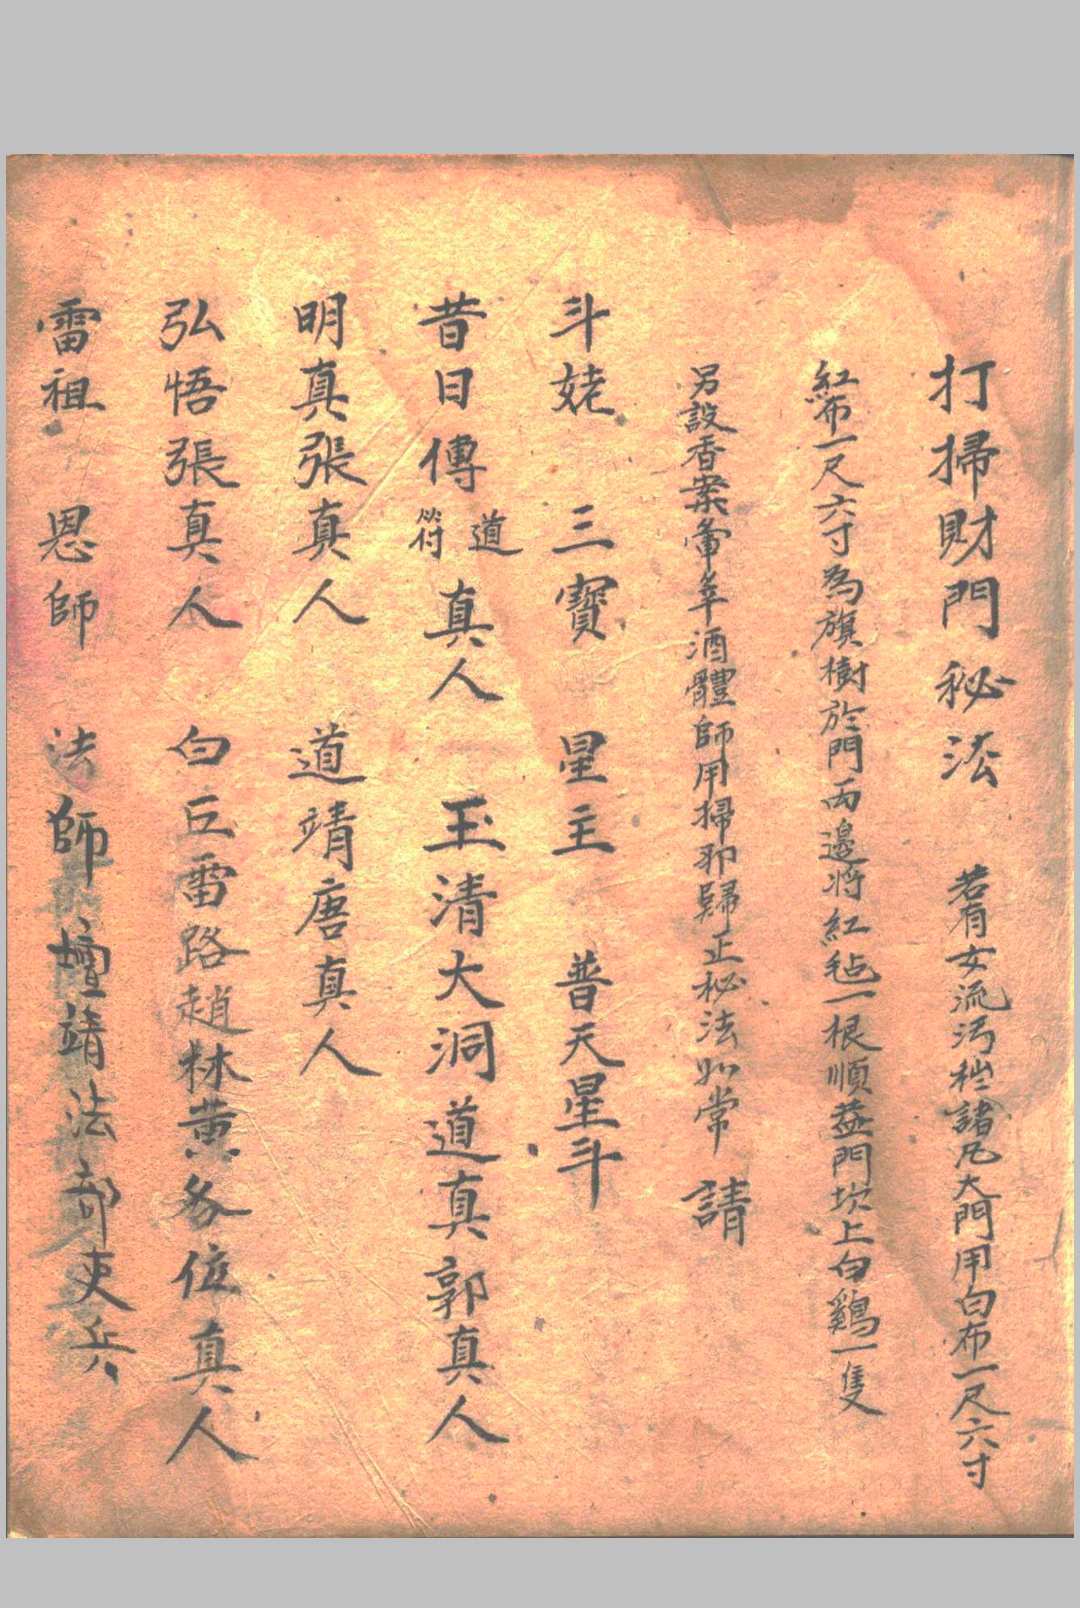 打掃財門秘法 若有女流污諸凡大門用白布一尺六寸
紅布一尺六寸為旗樹於門兩邊將紅毡一根順蓋門坎上白鷄一隻
另設香案葷羊酒體師用掃邪歸正秘法如常 請
斗姥 三寶 星主 普天星斗
昔日傳道符真人 玉清大洞道真郭真人
明真張真人 道靖唐真人
弘悟張真人 白巨雷路趙林黃各位真人
雷祖 恩師 法師壇靖法部吏兵